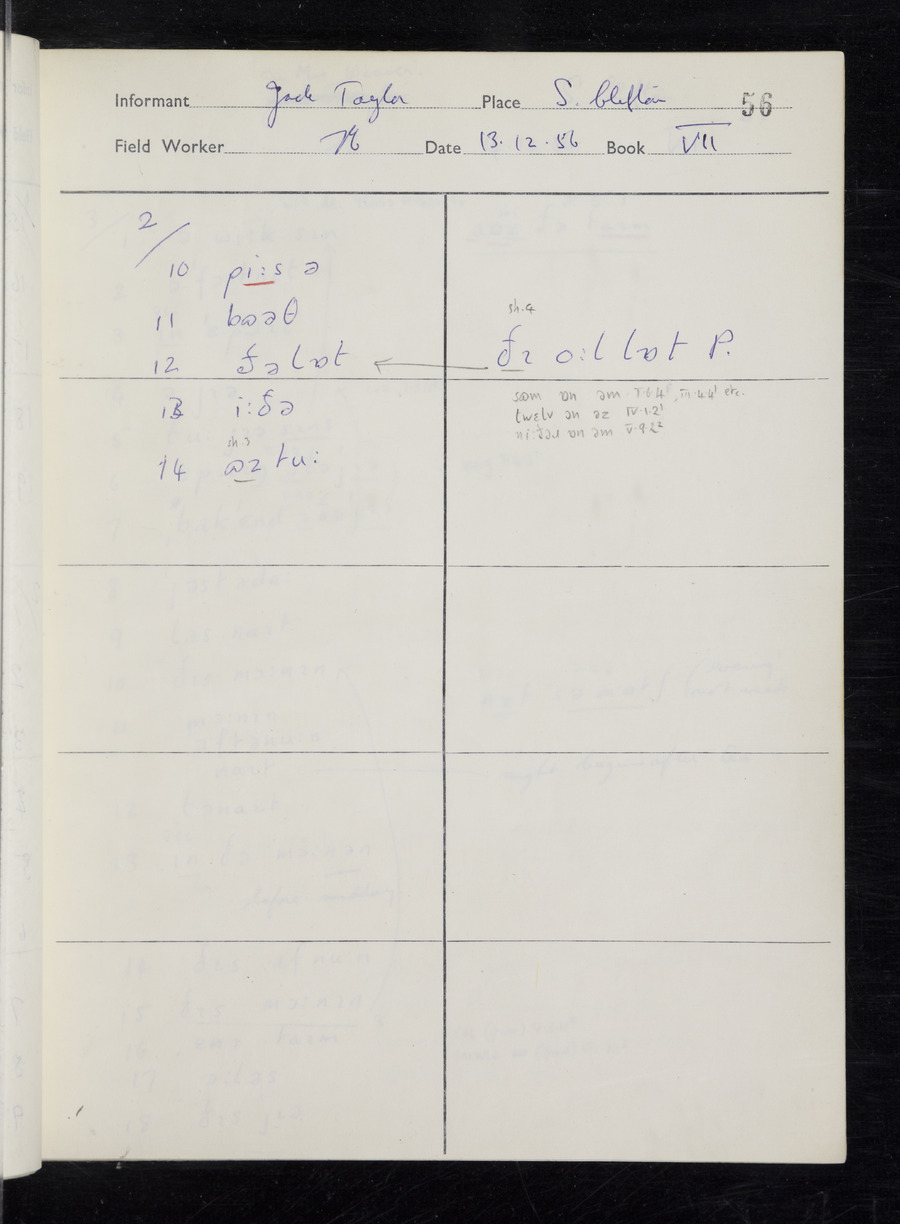 Informant Jack Taylor Place S. Clifton 56
Field Worker Date 13.12.56 Book VII
2/
10 pi:s ə
11 bɷəθ
12 ðə lɒt
13 i:ðə
sh. 3
14 ɷz tu:
sh. 4
ðɪ ɔ:l lɒt P.
sɷm ɒn əm
twɛlv ən əz IV.1.2¹
ni:ðəɹ ɒn əm V.9.2²